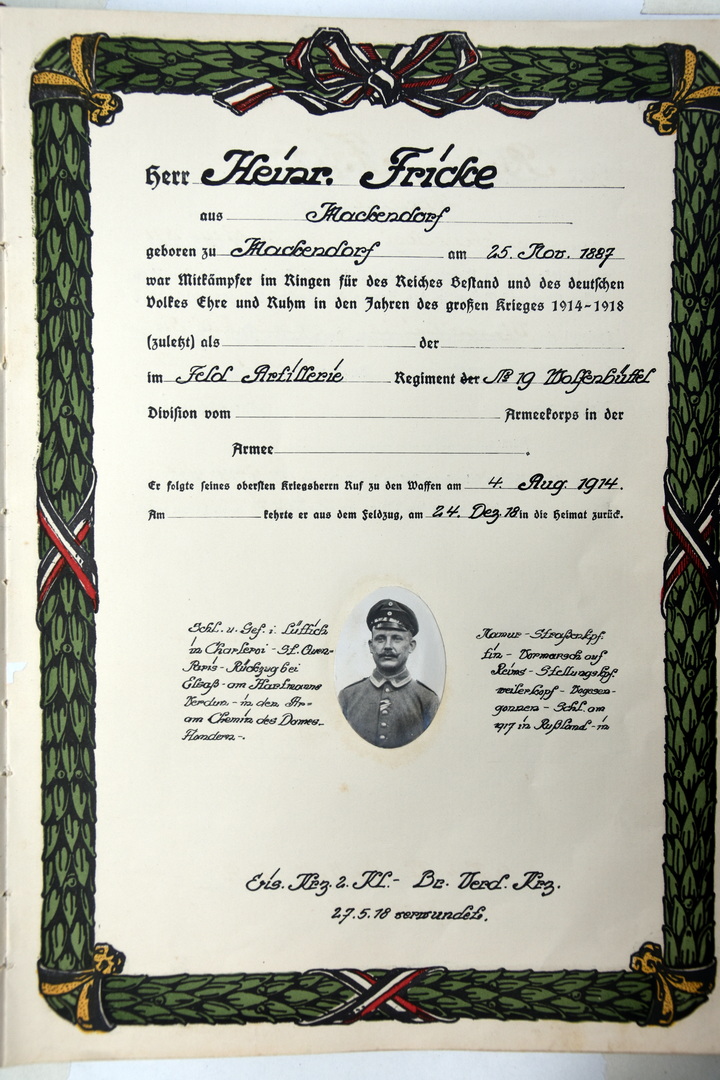 Herr Heinr. Fricke
aus Mackendorf
geboren zu Mackendorf am 25. Nov. 1887
war Mitkämpfer im Ringen für des Reiches Bestand und des deutschen
Volkes Ehre und Ruhm in den Jahren des großen Krieges 1914-1918
(zuletzt) als der
im Feld Artillerie Regiment der No 19 Wolfenbüttel
Division vom Armeekorps in der
Armee .
Er folgte seines obersten Kriegsherrn Ruf zu den Waffen am 4. Aug. 1914.
Am kehrte er aus dem Feldzug, am 24. Dez. 18 in die Heimat zurück.
Schl. u. Gef. i. Lüttich
in Charleroi - St. Quen-
Paris - Rückzug bei
Elsaß - am Hartmanns
Verdun - in den Ar-
am Chemin des Dames -
Flandern -.
Namur - Straßenkpf.
tin - Vormarsch auf
Reims - Stellungskpf.
weilerkopf - Vogesen-
gonnen - Schl. am
1917 in Rußland - in
Eis. Krz. 2. Kl. - Br. Verd. Krz.
27.5.18 verwundet.